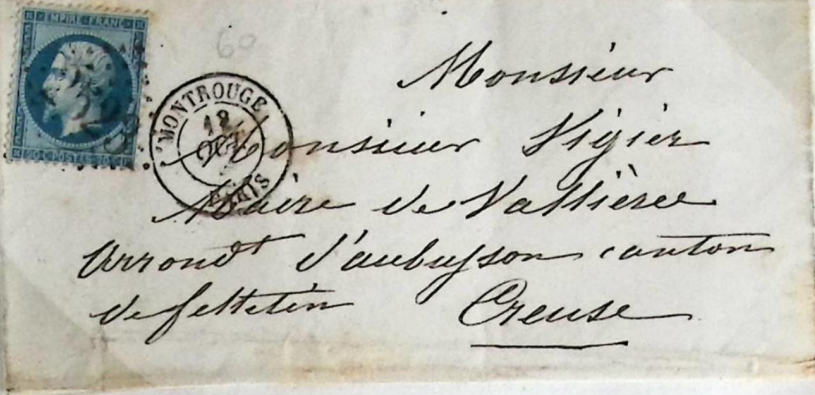 EMPIRE FRANC
60
20 C POSTES 20 C
MONTROUGE
18
OCT
PARIS
Monsieur
Monsieur Vigier
Maire de Vallière
Arrondt d'aubusson canton
de felletin Creuse